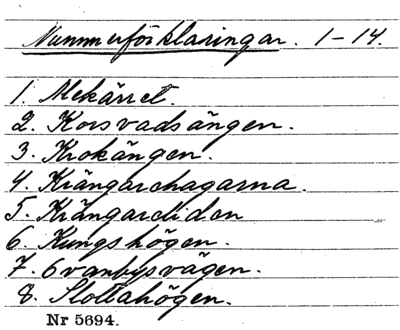 Nummerförklaringar. 1-14.
1. Mekärret.
2. Korsvadsängen.
3. Krokängen.
4. Krångarehagarna.
5. Krångareliden
6. Kungshögen.
7. Svanbysvägen.
8. Slottahögen.
Nr 5694.